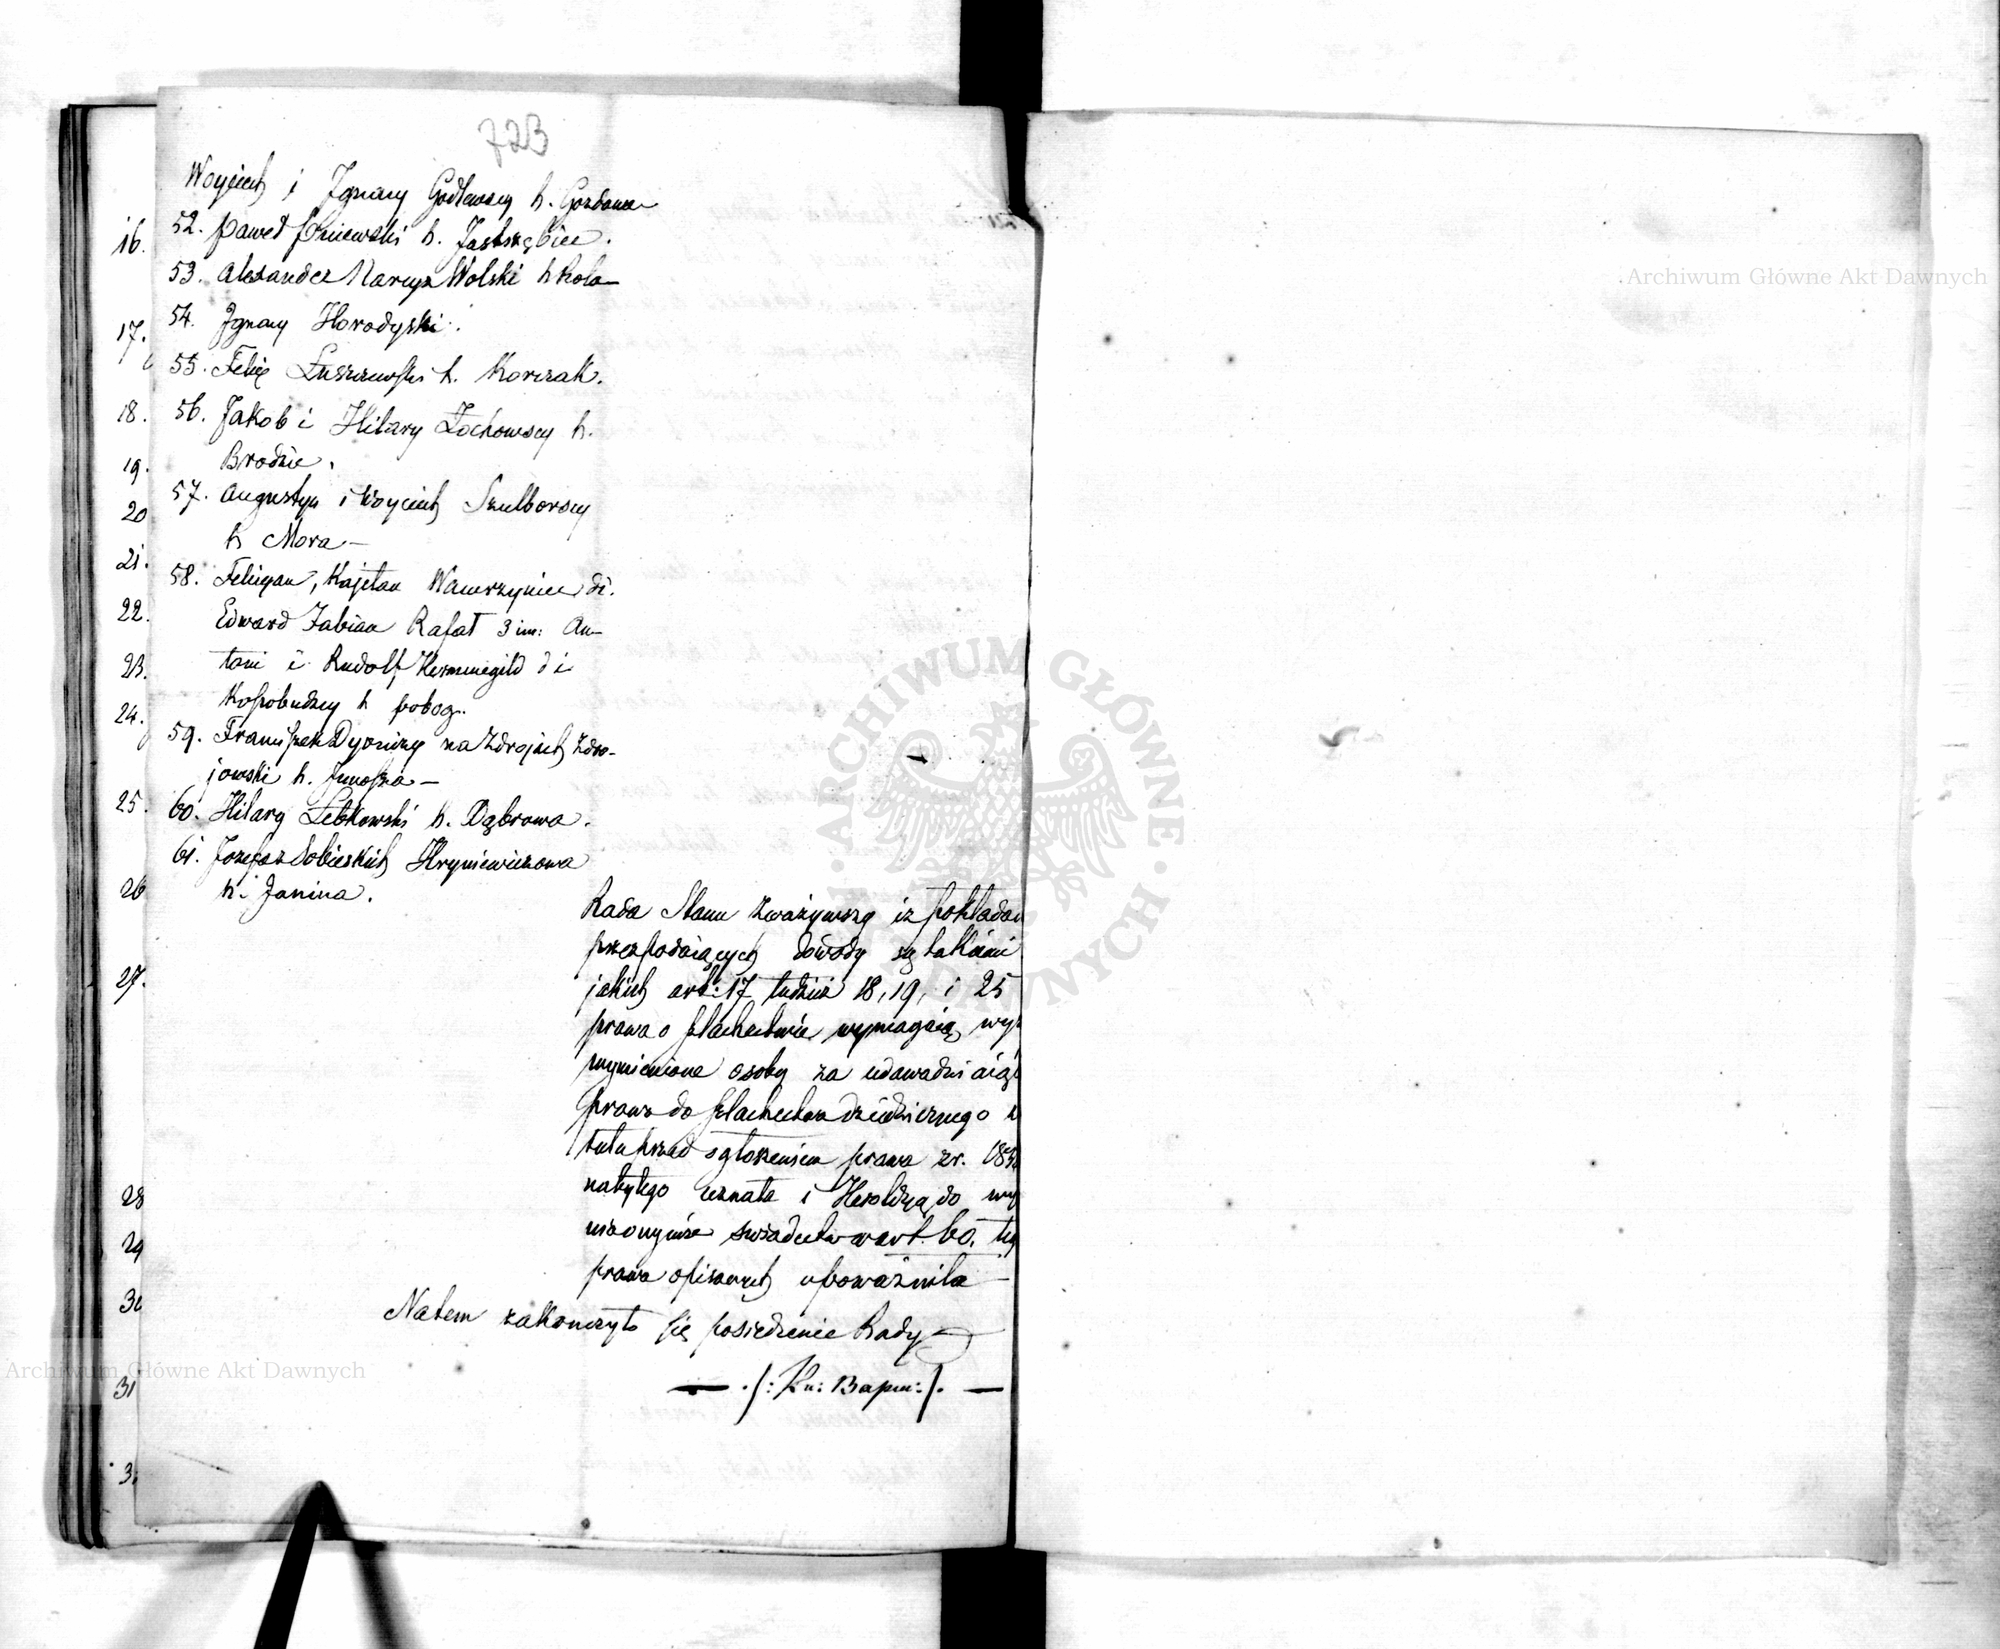 723
Woyciech i Ignacy Godlewscy h. Gozdawa
52. Paweł Gniewski h. Jastrzębiec.
53. Alexander Narcyz Wolski h Rola—
54. Ignacy Horodyski.
55. Felix Łuszczewski h. Korczak.
56. Jakob i Hilary Żochowscy h.
Brodzic.
57. Augustyn i Woyciech Szulborscy
h Mora—
58. Felicyan, Kajetan Wawrzyniec 2i.
Edward Fabian Rafał 3 im: An-
toni i Rudolf Hermenegild 2 i
Kossobudzcy h Pobog.
59. Franciszek Dyonizy na Zdrojach Zdro-
jowski h. Junosza—
60. Hilary Łebkowski h. Dąbrowa.
61. Jozefa z Sobieskich Hryniewiczowa
h. Janina.
Rada Stanu zważywszy iz pokładan
przez podaiących dowody są takiemi
jakich art: 17 tudzież 18, 19, i 25
prawa o szlachectwie wymagaią wy
mienione osoby za udawadniaiąc
prawo do szlachectwa dziedzicznego
tutu przed ogłoszeniem prawa z r. 183
nabytego uznała i Heroldyą do wy
świadectw w art. 60. teg
prawa opisanych upoważniła—
Natem zakonczyło się posiedzenie Rady
— ./: Кн: Варш: /. —
16.
17.
18.
19.
20
21.
22.
23.
24.
25.
26
27.
28
29
30
31
3
Archiwum Główne Akt Dawnych
Archiwum Główne Akt Dawnych
ARCHIWUM GŁÓWNE AKT DAWNYCH